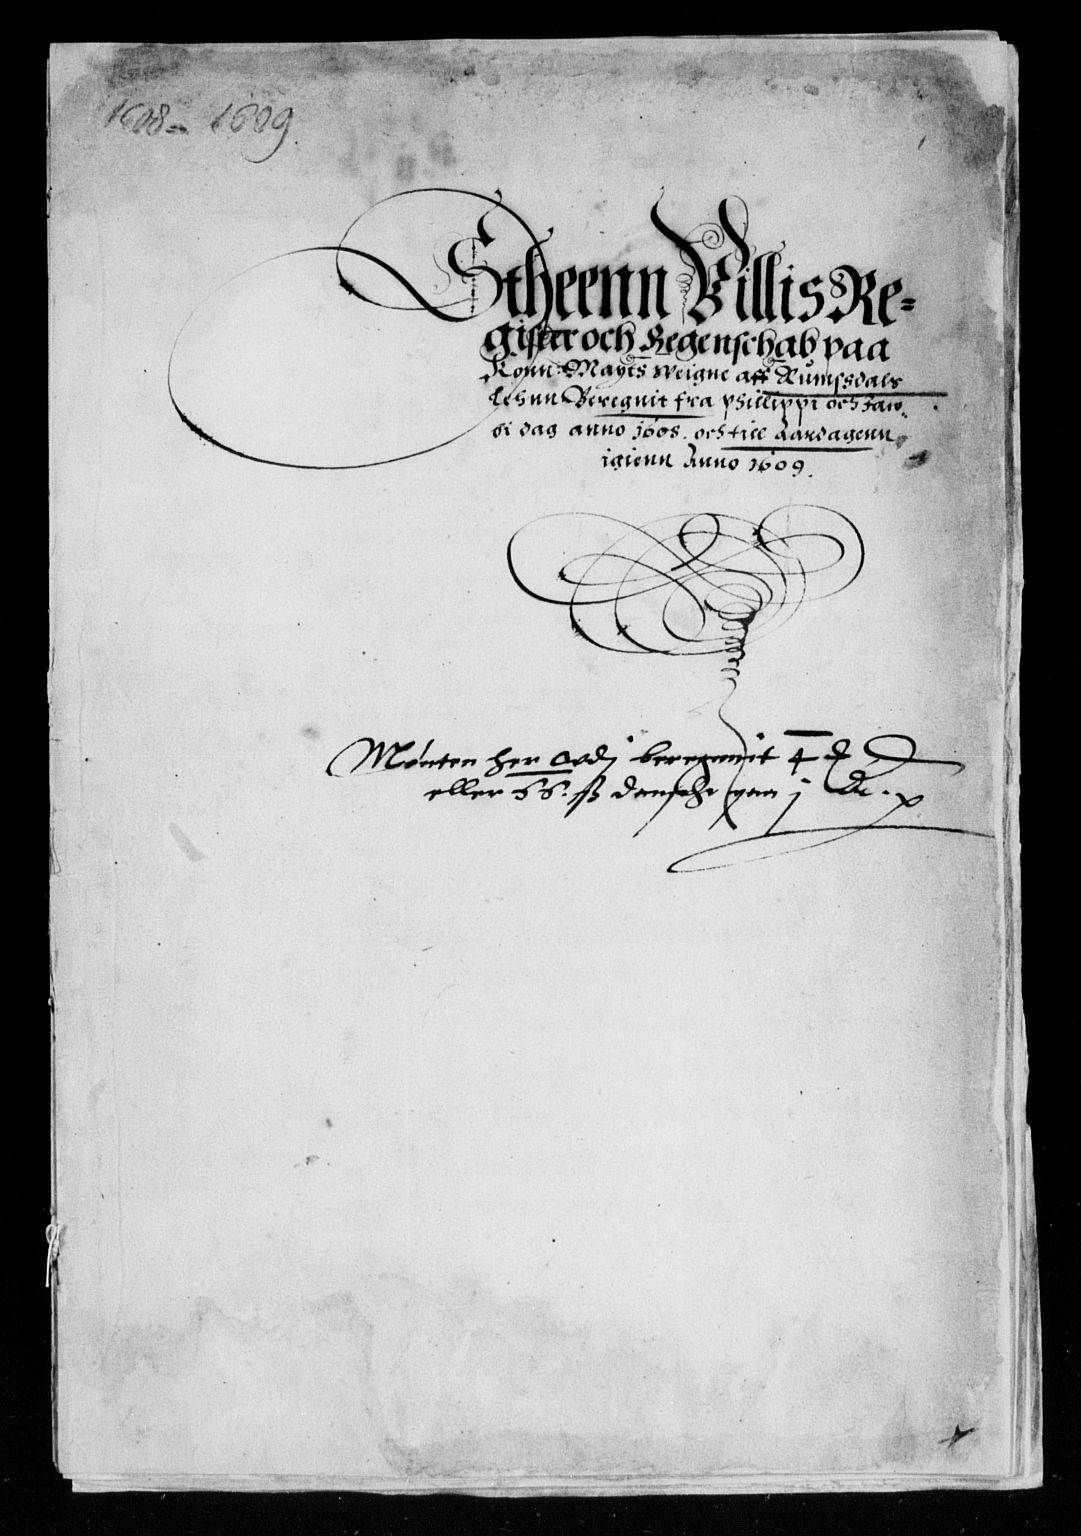 1608 - 1609
Stheenn Villis Re=
gister och Regenschab paa
Konn: Mayts weigne aff Rumssdals
Lehnn Beregnit fra Philippi och Jaco=
bi dag anno 1608. och till Aarsdagenn
igienn Anno 1609.
Mønten her vdj beregnnit 4
eller 66. ß danske paa j